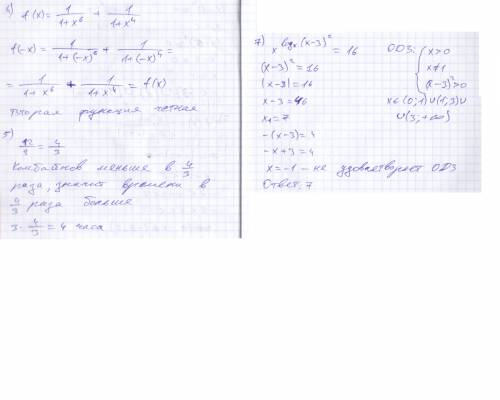 6) f(x) = 1/(1+x⁶) + 1/(1+x⁴)
f(-x) = 1/(1+(-x)⁶) + 1/(1+(-x)⁴) =
= 1/(1+x⁶) + 1/(1+x⁴) = f(x)
вторая функция четная
5)
12/9 = 4/3
Комбайнов меньше в 4/3
раза, значит времени в
4/3 раза больше
3 · 4/3 = 4 часа
7) x^(logₓ(x-3)²) = 16
(x-3)² = 16
|x-3| = 16
x-3 = 4
x₁ = 7
-(x-3) = 4
-x+3 = 4
x = -1 - не удовлетворяет ОДЗ
Ответ: 7
ОДЗ: { x>0
x≠1
(x-3)²>0
x∈(0;1)∪(1;3)∪
∪(3;+∞)